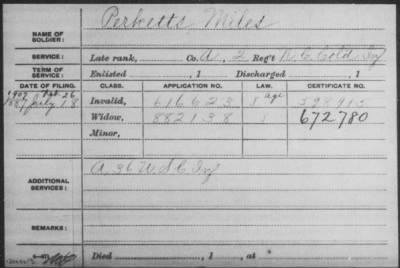 Perketts, Miles
NAME OF SOLDIER:
SERVICE: Late rank, Co. A, 2 Reg't N. C. Cold. Inf
TERM OF SERVICE: Enlisted , 1 Discharged , 1
DATE OF FILING. CLASS. APPLICATION NO. LAW. CERTIFICATE NO.
1887 July 18 Invalid, 616623 598915
Widow, 882138 672780
Minor,
ADDITIONAL SERVICES: A. 36 U.S.C. Inf
REMARKS:
Died , 1 , at